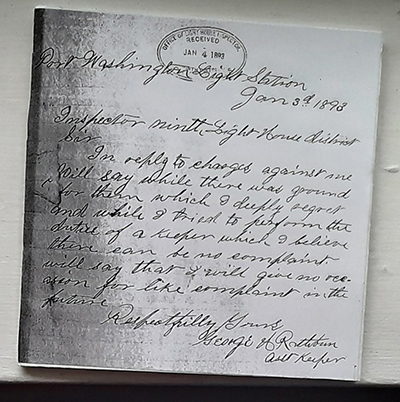 OFFICE OF LIGHT HOUSE INSPECTOR
RECEIVED
JAN 4 1893
Port Washington Light Station
Jan 3d 1893
Inspector ninth Light House district
Sir
In reply to charges against me
Will say while there was ground
for them which I deeply regret
and while I tried to perform the
duties of a Keeper which I believe
there can be no complaint
will say that I will give no occ-
asion for like complaint in the
future
Respectfully Yours
George A Rathbun
Asst Keeper